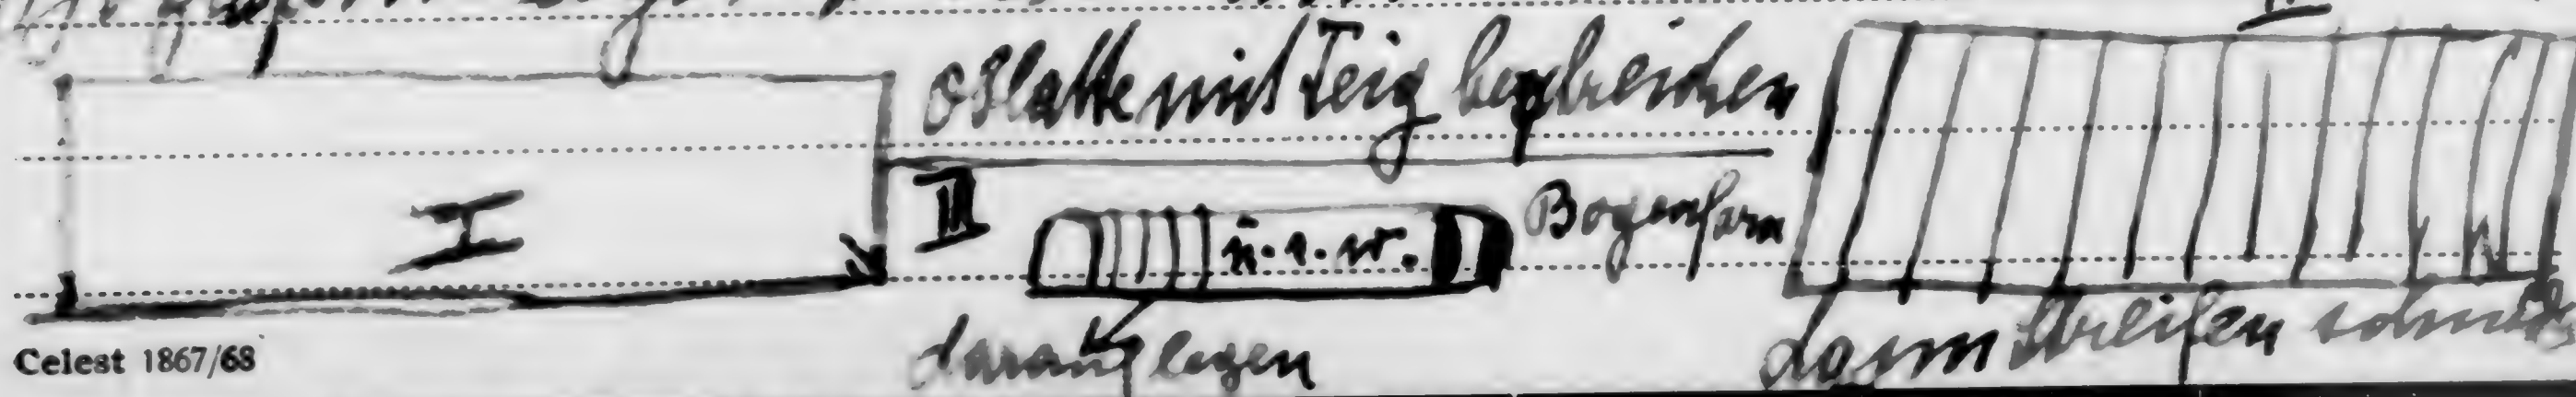 II
Oblatte mit Teig bestreichen
I
III
u.s.w.
Bogenform
darauf legen
dann Streifen schneiden
Celest 1867/68